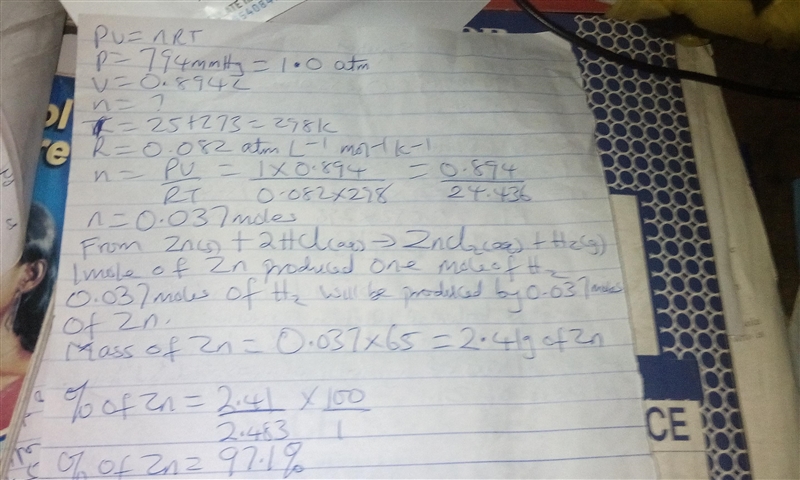 PV = nRT
P = 794mmHg = 1.0 atm
V = 0.894L
n = ?
T = 25+273 = 298k
R = 0.082 atm L-1 mol-1 k-1
n = PV/RT = 1 x 0.894/0.082x298 = 0.894/24.436
n = 0.037moles
From Zn(s) + 2HCl(aq) → ZnCl2(aq) + H2(g)
1mole of Zn produced one mole of H2
0.037moles of H2 will be produced by 0.037moles
of Zn.
Mass of Zn = 0.037x65 = 2.41g of Zn
% of Zn = 2.41/2.483 x 100/1
% of Zn = 97.1%
ol
re
CE